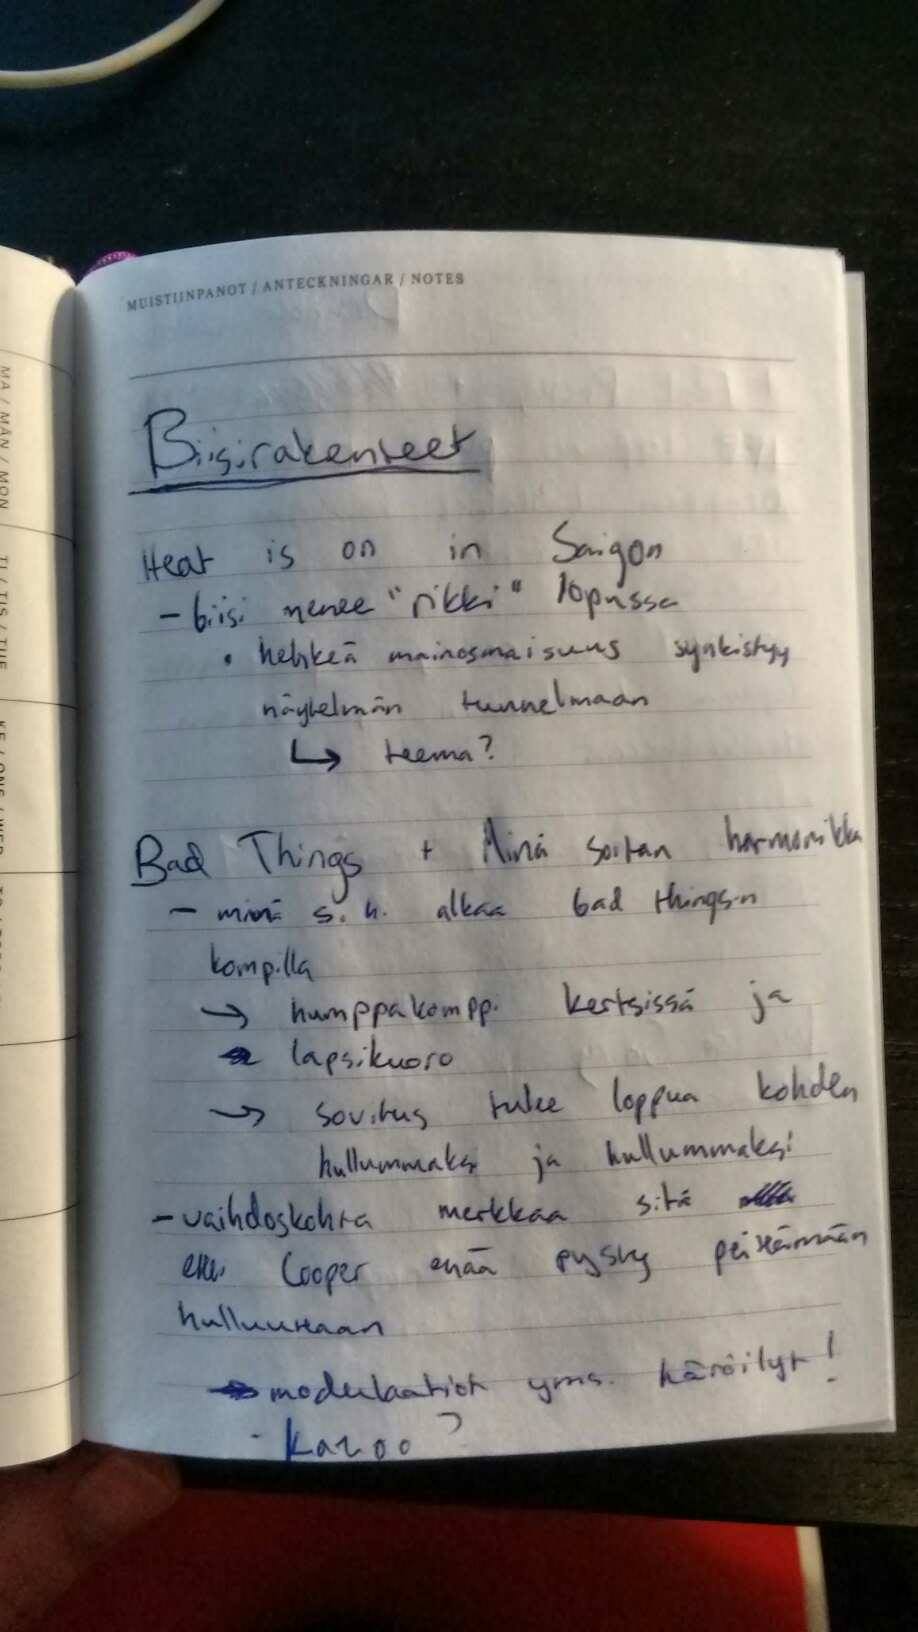 MUISTIINPANOT / ANTECKNINGAR / NOTES
Biisirakenteet
Heat is on in Saigon
- biisi menee "rikki" lopussa
• hehkeä mainosmaisuus synkistyy
näytelmän tunnelmaan
↳ teema?
Bad Things + Minä soitan harmonikka
- minä s.h. alkaa bad things:n
kompilla
→ humppakomppi kertsissä ja
lapsikuoro
→ sovitus tulee loppua kohden
hullummaksi ja hullummaksi
- vaihdoskohta merkkaa sitä
ettei Cooper enää pysty peittämään
hulluuttaan
→ modulaatiot yms. häröilyt!
- kazoo?
MA / MÅN / MON
TI / TIS / TUE
KE / ONS / WED